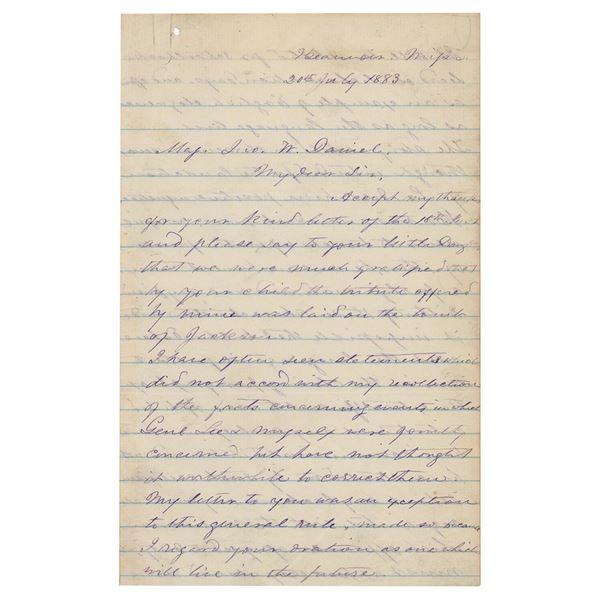 Beauvoir, Missi.
20th July 1883
Maj. Jno. W. Daniel,
My dear Sir,
Accept my thanks
for your kind letter of the 18th Inst
and please say to your little Daughter
that we were much gratified that
by your child the tribute offered
by mine was laid on the tomb
of Jackson.
I have often seen statements which
did not accord with my recollection
of the facts concerning events in which
Genl Lee & myself were jointly
concerned but have not thought
it worthwhile to correct them.
My letter to you was an exception
to this general rule, made so because
I regard your oration as one which
will live in the future.